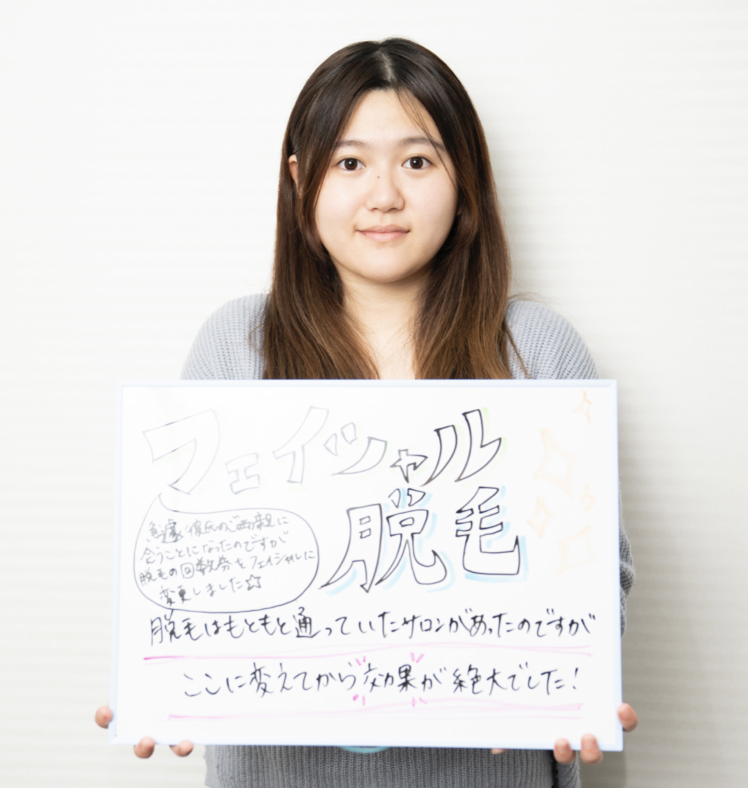 フェイシャル
脱毛
急遽、彼氏のご両親に
会うことになったのですが
脱毛の回数券をフェイシャルに
変更しました☆
脱毛はもともと通っていたサロンがあったのですが
ここに変えてから効果が絶大でした!